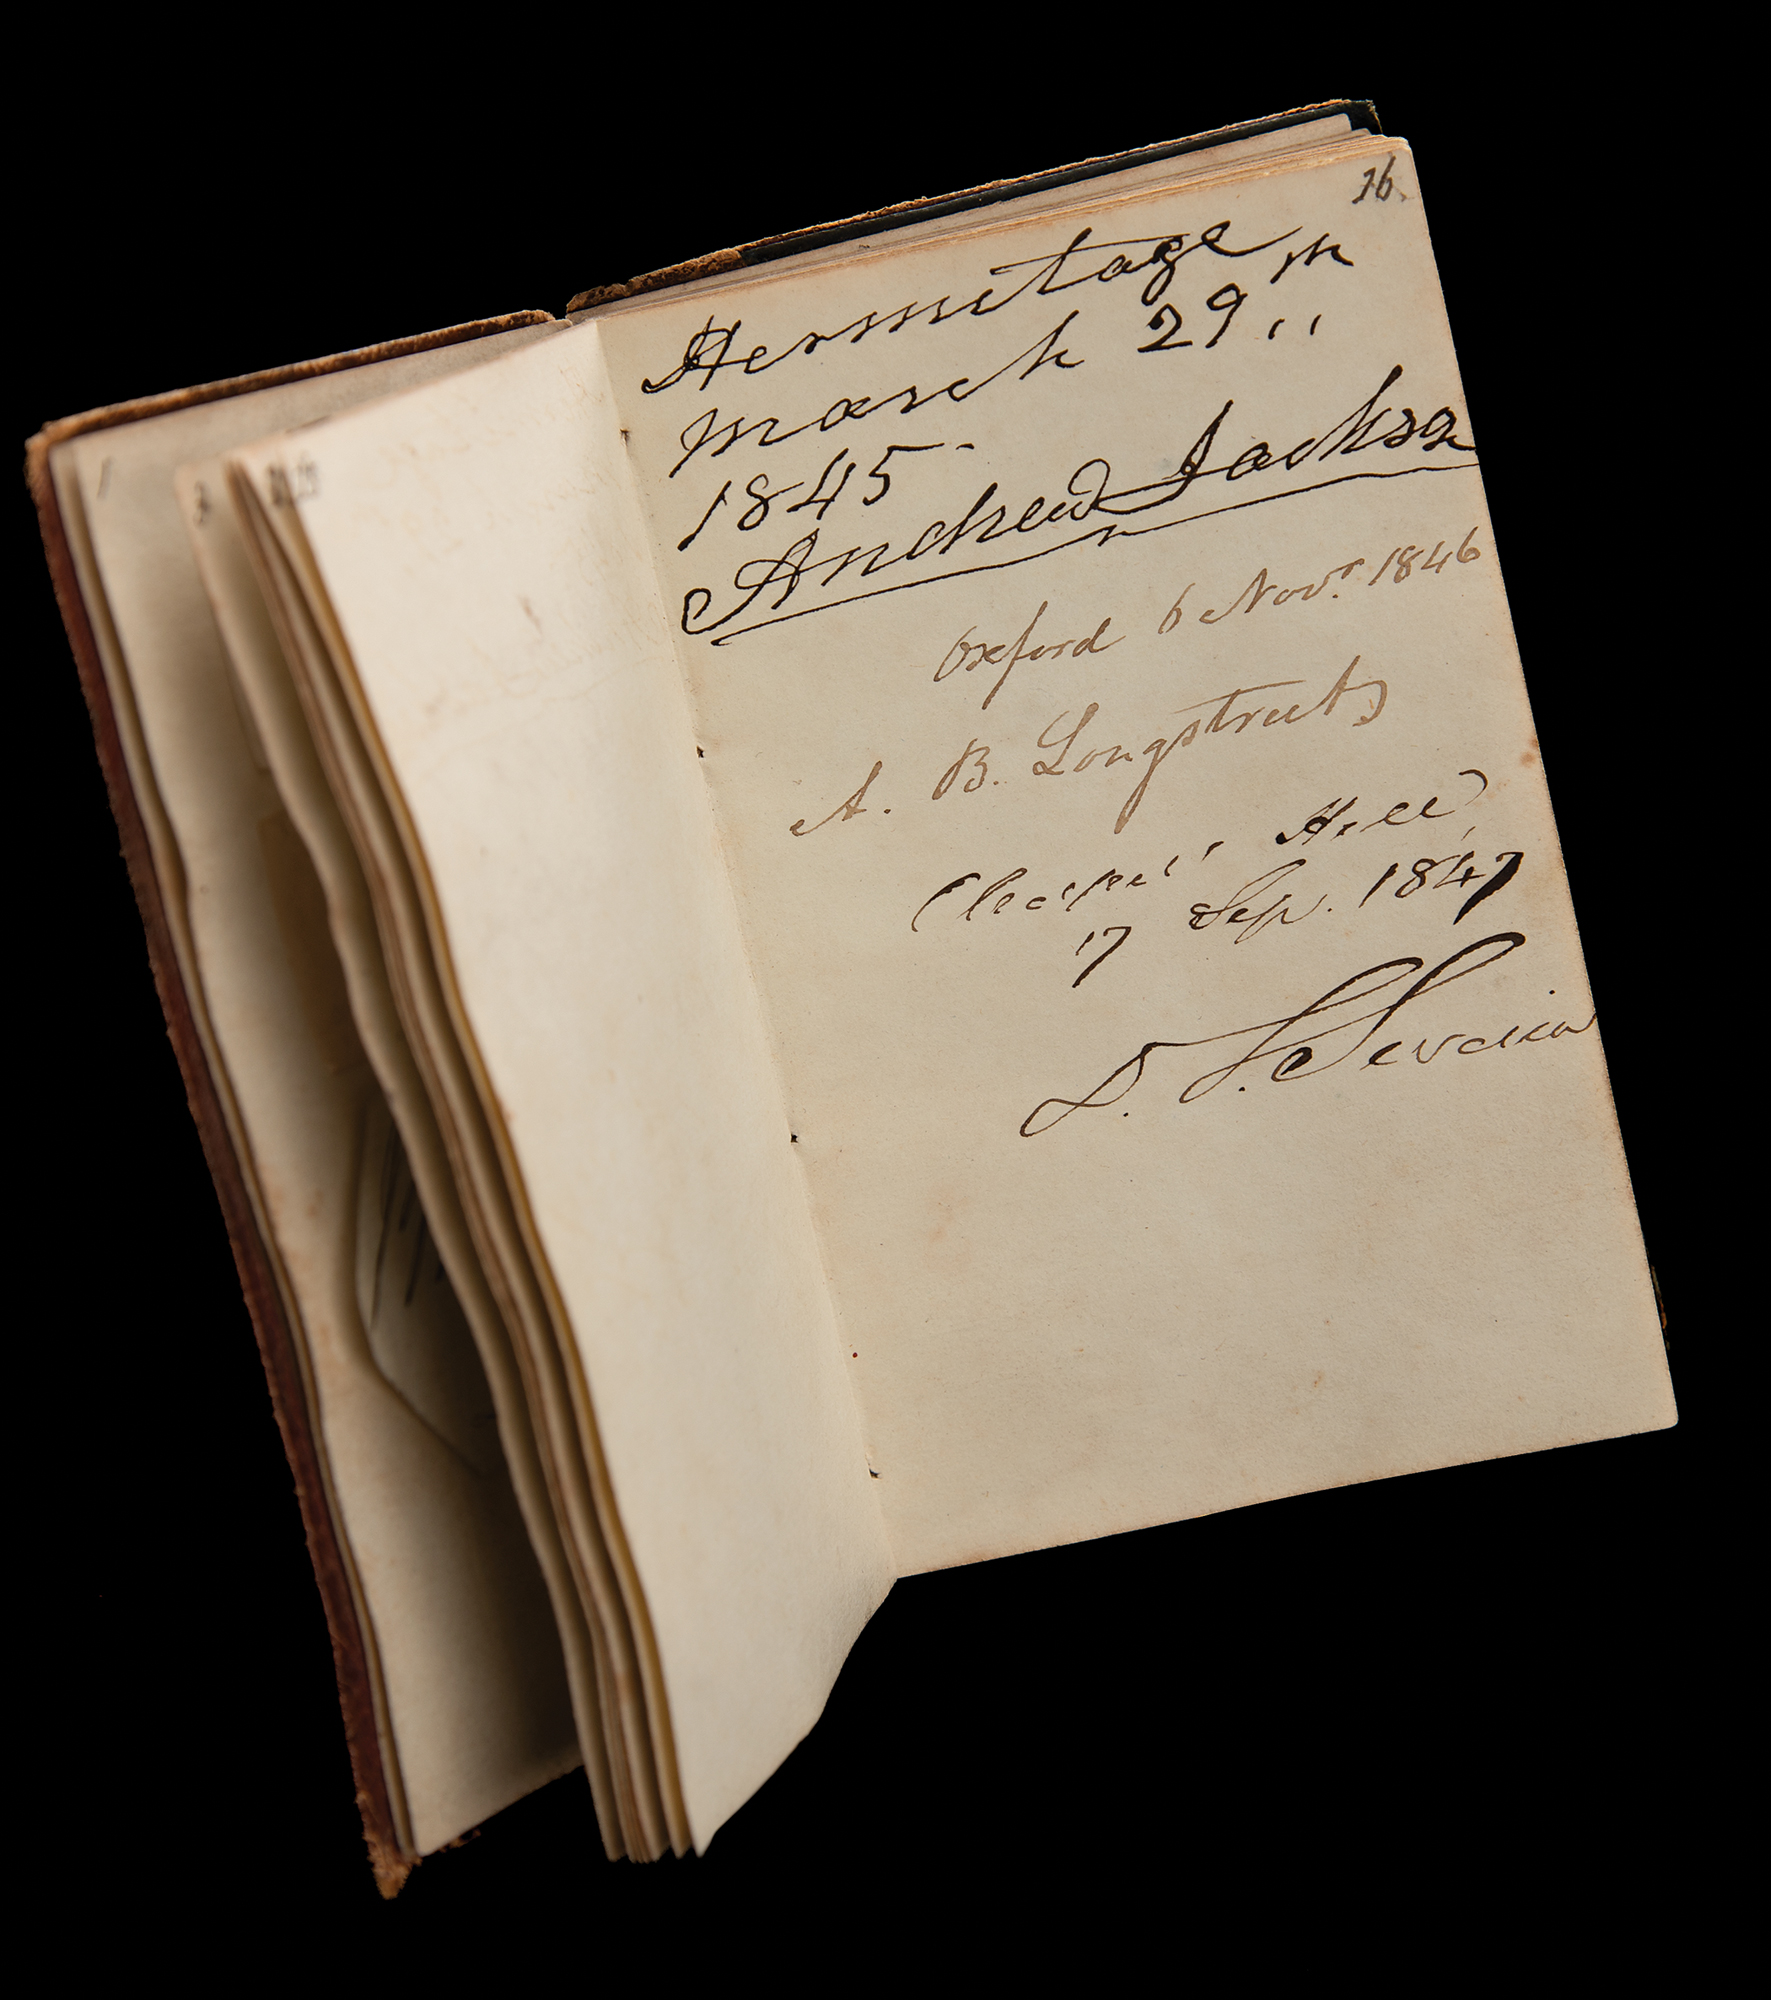 26.
Hermitage
march 29th
1845-
Andrew Jackson
Oxford 6 Novr. 1846
A. B. Longstreet
Chapel Hill,
17 Sep. 1847
D. L. Swain
1
3